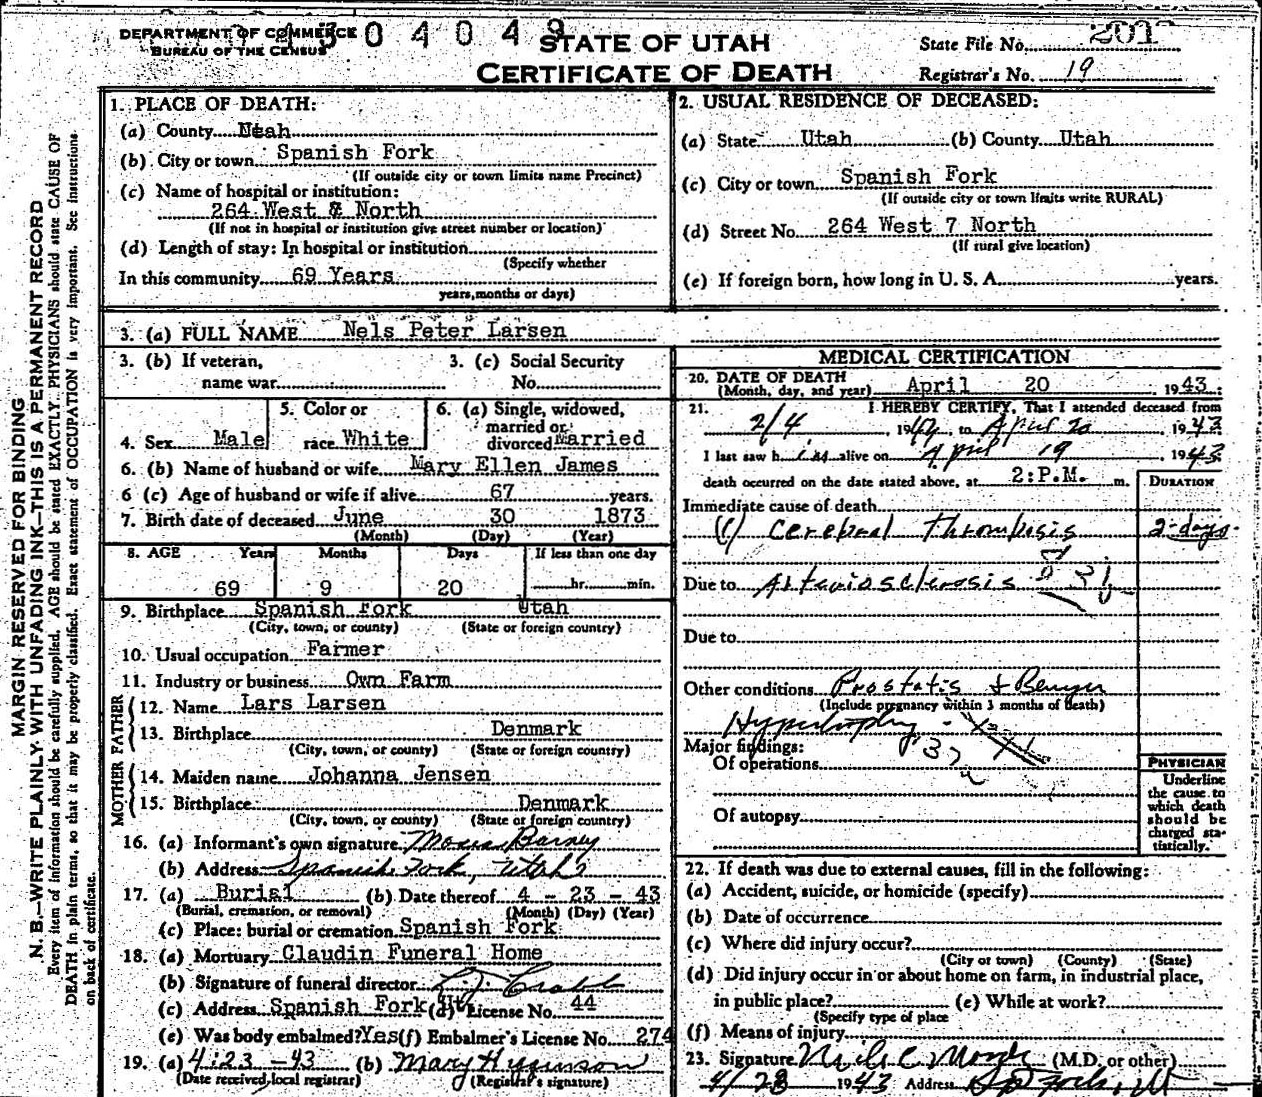 DEPARTMENT OF COMMERCE
BUREAU OF THE CENSUS
0 4 0 4 9
STATE OF UTAH
CERTIFICATE OF DEATH
State File No. 201
Registrar's No. 19
MARGIN RESERVED FOR BINDING
N. B.—WRITE PLAINLY WITH UNFADING INK—THIS IS A PERMANENT RECORD
Every item of information should be carefully supplied. AGE should be stated EXACTLY. PHYSICIANS should state CAUSE OF
DEATH in plain terms, so that it may be properly classified. Exact statement of OCCUPATION is very important. See instructions
on back of certificate.
1. PLACE OF DEATH:
(a) County Utah
(b) City or town Spanish Fork
(If outside city or town limits name Precinct)
(c) Name of hospital or institution:
264 West & North
(If not in hospital or institution give street number or location)
(d) Length of stay: In hospital or institution
(Specify whether
In this community 69 Years
years, months or days)
2. USUAL RESIDENCE OF DECEASED:
(a) State Utah (b) County Utah
(c) City or town Spanish Fork
(If outside city or town limits write RURAL)
(d) Street No. 264 West 7 North
(If rural give location)
(e) If foreign born, how long in U. S. A. years.
3. (a) FULL NAME Nels Peter Larsen
3. (b) If veteran, name war
3. (c) Social Security No.
4. Sex Male
5. Color or race White
6. (a) Single, widowed, married or divorced Married
6. (b) Name of husband or wife Mary Ellen James
6 (c) Age of husband or wife if alive 67 years.
7. Birth date of deceased June 30 1873
(Month) (Day) (Year)
8. AGE Years Months Days If less than one day
69 9 20 hr. min.
9. Birthplace Spanish Fork Utah
(City, town, or county) (State or foreign country)
10. Usual occupation Farmer
11. Industry or business Own Farm
FATHER
12. Name Lars Larsen
13. Birthplace Denmark
(City, town, or county) (State or foreign country)
MOTHER
14. Maiden name Johanna Jensen
15. Birthplace Denmark
(City, town, or county) (State or foreign country)
16. (a) Informant's own signature Barney
(b) Address Spanish Fork, Utah
17. (a) Burial (b) Date thereof 4 - 23 - 43
(Burial, cremation, or removal) (Month) (Day) (Year)
(c) Place: burial or cremation Spanish Fork
18. (a) Mortuary Claudin Funeral Home
(b) Signature of funeral director
(c) Address Spanish Fork Ut (d) License No. 44
(e) Was body embalmed? Yes (f) Embalmer's License No. 274
19. (a) 4-23-43 (b) Mary
(Date received, local registrar) (Registrar's signature)
MEDICAL CERTIFICATION
20. DATE OF DEATH
(Month, day, and year) April 20 1943
21. I HEREBY CERTIFY, That I attended deceased from
2/4, 19 to April 20 1943
I last saw him alive on April 19, 1943
death occurred on the date stated above, at 2:P.M. m.
DURATION
Immediate cause of death
(1) Cerebral Thrombosis 2-days-
Due to Arteriosclerosis
Due to
Other conditions Prostatis & Benign
(Include pregnancy within 3 months of death)
Hypertrophy
Major findings:
Of operations
Of autopsy
PHYSICIAN
Underline
the cause to
which death
should be
charged sta-
tistically.
22. If death was due to external causes, fill in the following:
(a) Accident, suicide, or homicide (specify)
(b) Date of occurrence
(c) Where did injury occur?
(City or town) (County) (State)
(d) Did injury occur in or about home on farm, in industrial place,
in public place? (e) While at work?
(Specify type of place
(f) Means of injury
23. Signature (M.D. or other)
4/28 1943 Address Sp Fork, Ut